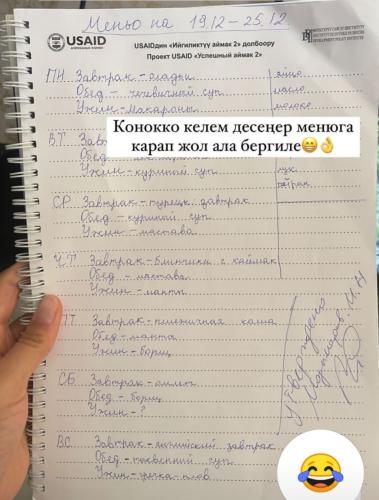 Меньо на 19.12 – 25.12
USAID
USAIDдин «Ийгиликтүү аймак 2» долбоору
Проект USAID «Успешный аймак 2»
ПН. Завтрак – оладьи
яйцо
Обед – чечевичный суп
масло
Ужин – макароны
молоко
Конокко келем десеңер менюга
карап жол ала бергиле😁👌
ВТ
Ужин – куриный суп
лук
СР. Завтрак – турецк. завтрак
Обед – куриный суп
Ужин – мастава
ЧТ Завтрак – блинчики с каймак
Обед – мастава
Ужин – манты
ПТ Завтрак – пшеничная каша
Обед – манты
Ужин – борщ
Утверждено
СБ Завтрак – омлет
Обед – борщ
Ужин – ?
ВС Завтрак – английский завтрак
Обед – тыквенный суп
Ужин – плов